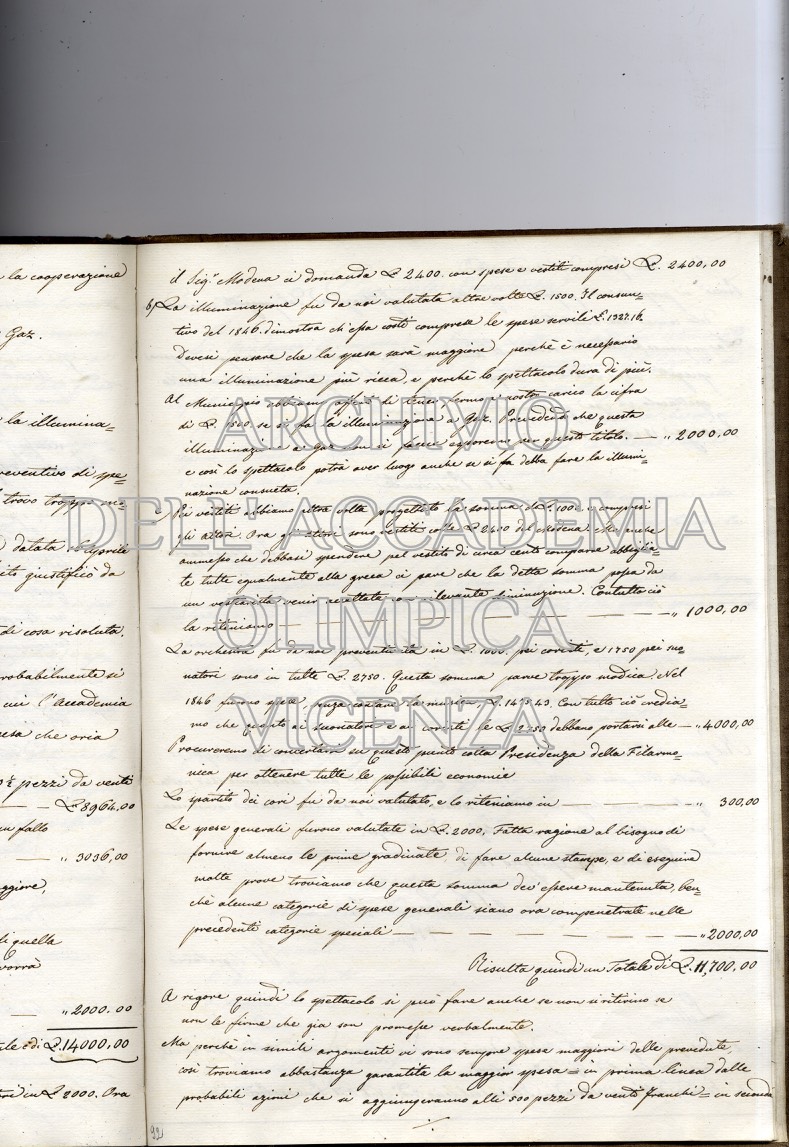 la cooperazione
Gaz.
la illumina=
reventivo di spe=
trovo troppo
datata
giustificò da
di cosa risoluta.
robabilmente si
cui l'Accademia
che ora
½ pezzi da venti
£ 8964,00
un fallo
" 3036,00
ggiore,
di quella
vorrà
" 2000.00
di £. 14000,00
in £ 2000. Ora
il Sigr. Modena ci domanda £ 2400. con spese e vestiti compresi £. 2400,00
b) La illuminazione fu da noi valutata altre volte £. 1500. Il consun=
tivo del 1846 dimostra ch'essa costò comprese le spese servili £. 1327.16.
Devesi pensare che la spesa sarà maggiore perchè è necessario
una illuminazione più ricca, e perchè lo spettacolo dura di più.
Al Municipio abbiam di tener fermo a nostro carico la cifra
di £. 1500 se si fa la illuminazione a Gaz. Prevedendo che questa
illuminazione a Gaz non si faccia per questo titolo. — " 2000,00
e così lo spettacolo potrà aver luogo anche se si debba fare la illumi=
nazione consueta.
Pei vestiti abbiamo altra volta progettato la somma di £. 1000. compresi
gli attori. Ora gli attori sono vestiti colle £ 2400 del Modena. Ma anche
ammesso che debbasi spendere pel vestito di circa cento comparse abbiglia=
te tutte egualmente alla greca ci pare che la detta somma possa da
un vestiarista venir accettata con rilevante diminuzione. Contutto ciò
la riteniamo — " 1000,00
La orchestra fu da noi preventivata in £. 1000. pei coristi, e 1750 pei suo=
natori sono in tutte £. 2750. Questa somma parve troppo modica. Nel
1846 furono spese, senza contare la musica, £. 1473.43. Con tutto ciò credia=
mo che quanto ai suonatori e ai coristi le £ 2750 debbano portarsi alle — " 4000,00
Procureremo di concertarsi su questo punto colla Presidenza della Filarmo=
nica per ottenere tutte le possibili economie
Lo spartito dei cori fu da noi valutato, e lo riteniamo in — " 300,00
Le spese generali furono valutate in £. 2000. Fatta ragione al bisogno di
fornire almeno le prime gradinate, di fare alcune stampe, e di eseguire
molte prove troviamo che questa somma dev'essere mantenuta, ben=
chè alcune categorie di spese generali siano ora compenetrate nelle
precedenti categorie speciali — " 2000,00
Risulta quindi un Totale di £. 11,700,00
A rigore quindi lo spettacolo si può fare anche se non si ritirino se
non le firme che già son promesse verbalmente.
Ma perchè in simili argomenti vi sono sempre spese maggiori delle prevedute,
così troviamo abbastanza garantita la maggior spesa = in prima linea dalle
probabili azioni che si aggiungeranno alli 500 pezzi da venti franchi = in seconda
./.
92
ARCHIVIO
DELL'ACCADEMIA
OLIMPICA
VICENZA